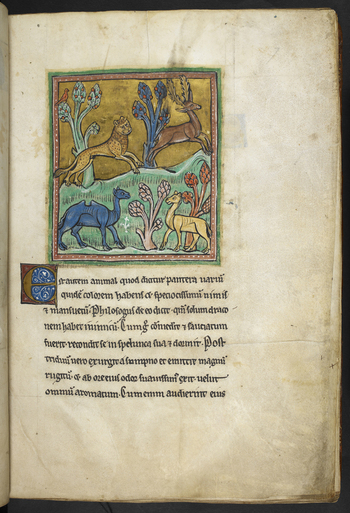 Est autem animal quod dicitur pantera variu
quide colorem habens & speciosissimu nimis
& mansuetu. Philosogus de eo dicit. qm solum draco
nem habet inimicu. Cum g comederit & saciatum
fuerit. recondit se in spelunca sua & dormit. Post
triduu vero exurgit a sompno & emittit magnu
rugitu. & ab ore eius odor suavissim exit. velut
omniu aromatum. Cum enim audierint eius